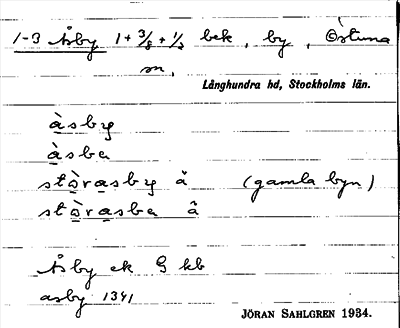 1-3 Åsby 1 + 3/8 + 1/3 bek, by, Östuna
sn,
Långhundra hd, Stockholms län.
àsby
àsba
stòrasby å (gamla byn)
stòrasba å
Åsby ek G kb
asby 1341
JÖRAN SAHLGREN 1934.